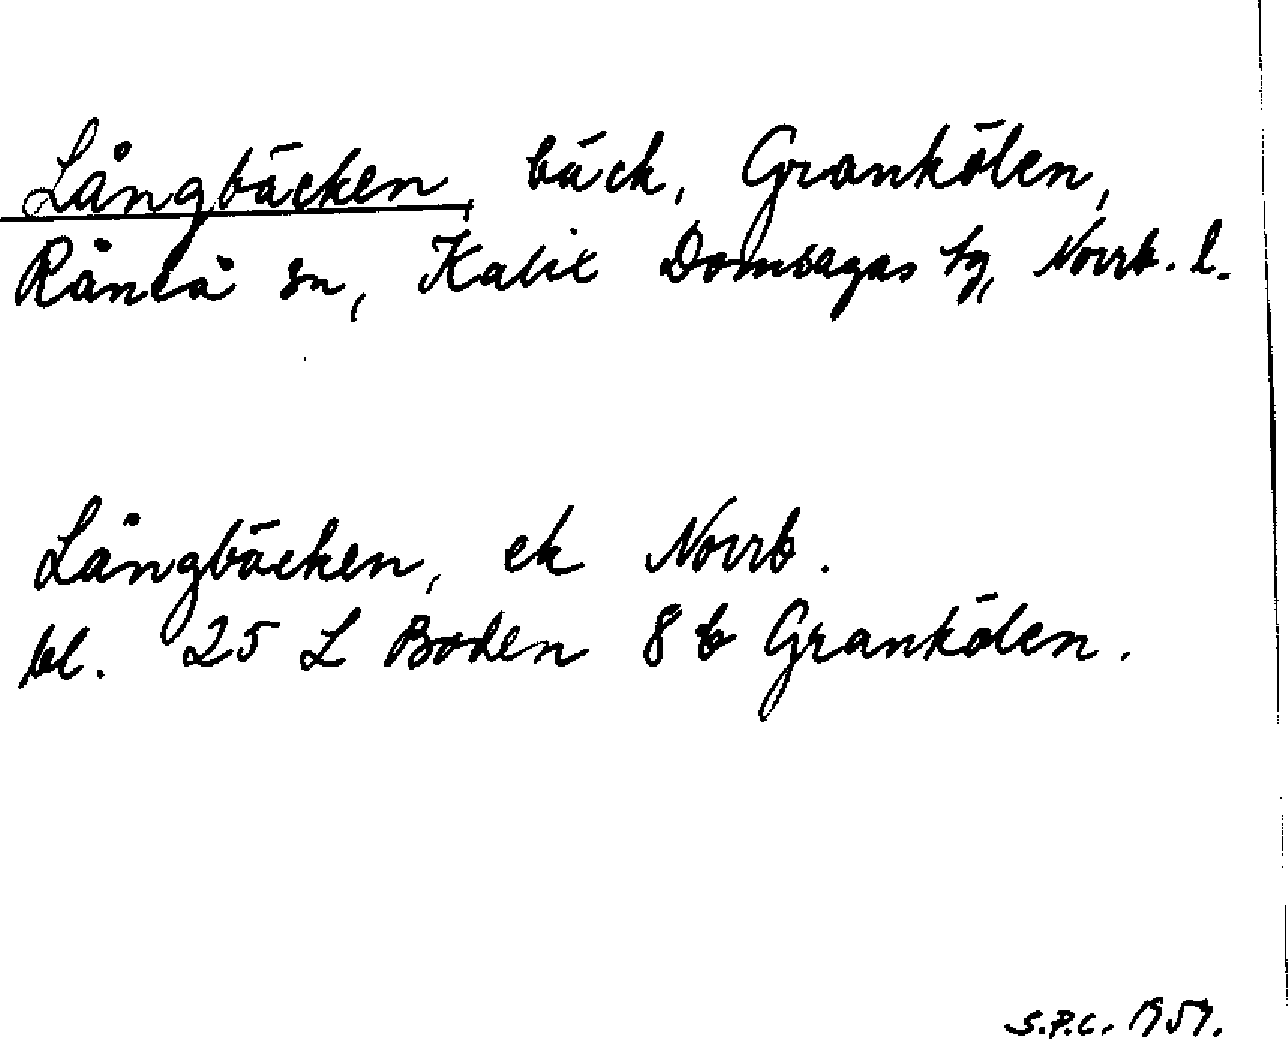 Långbäcken, bäck, Grankölen,
Råneå sn, Kalix Domsagas tg, Norrb. l.
Långbäcken, ek Norrb.
bl. 25 L Boden 8 b Grankölen.
S.P.C. 1959.